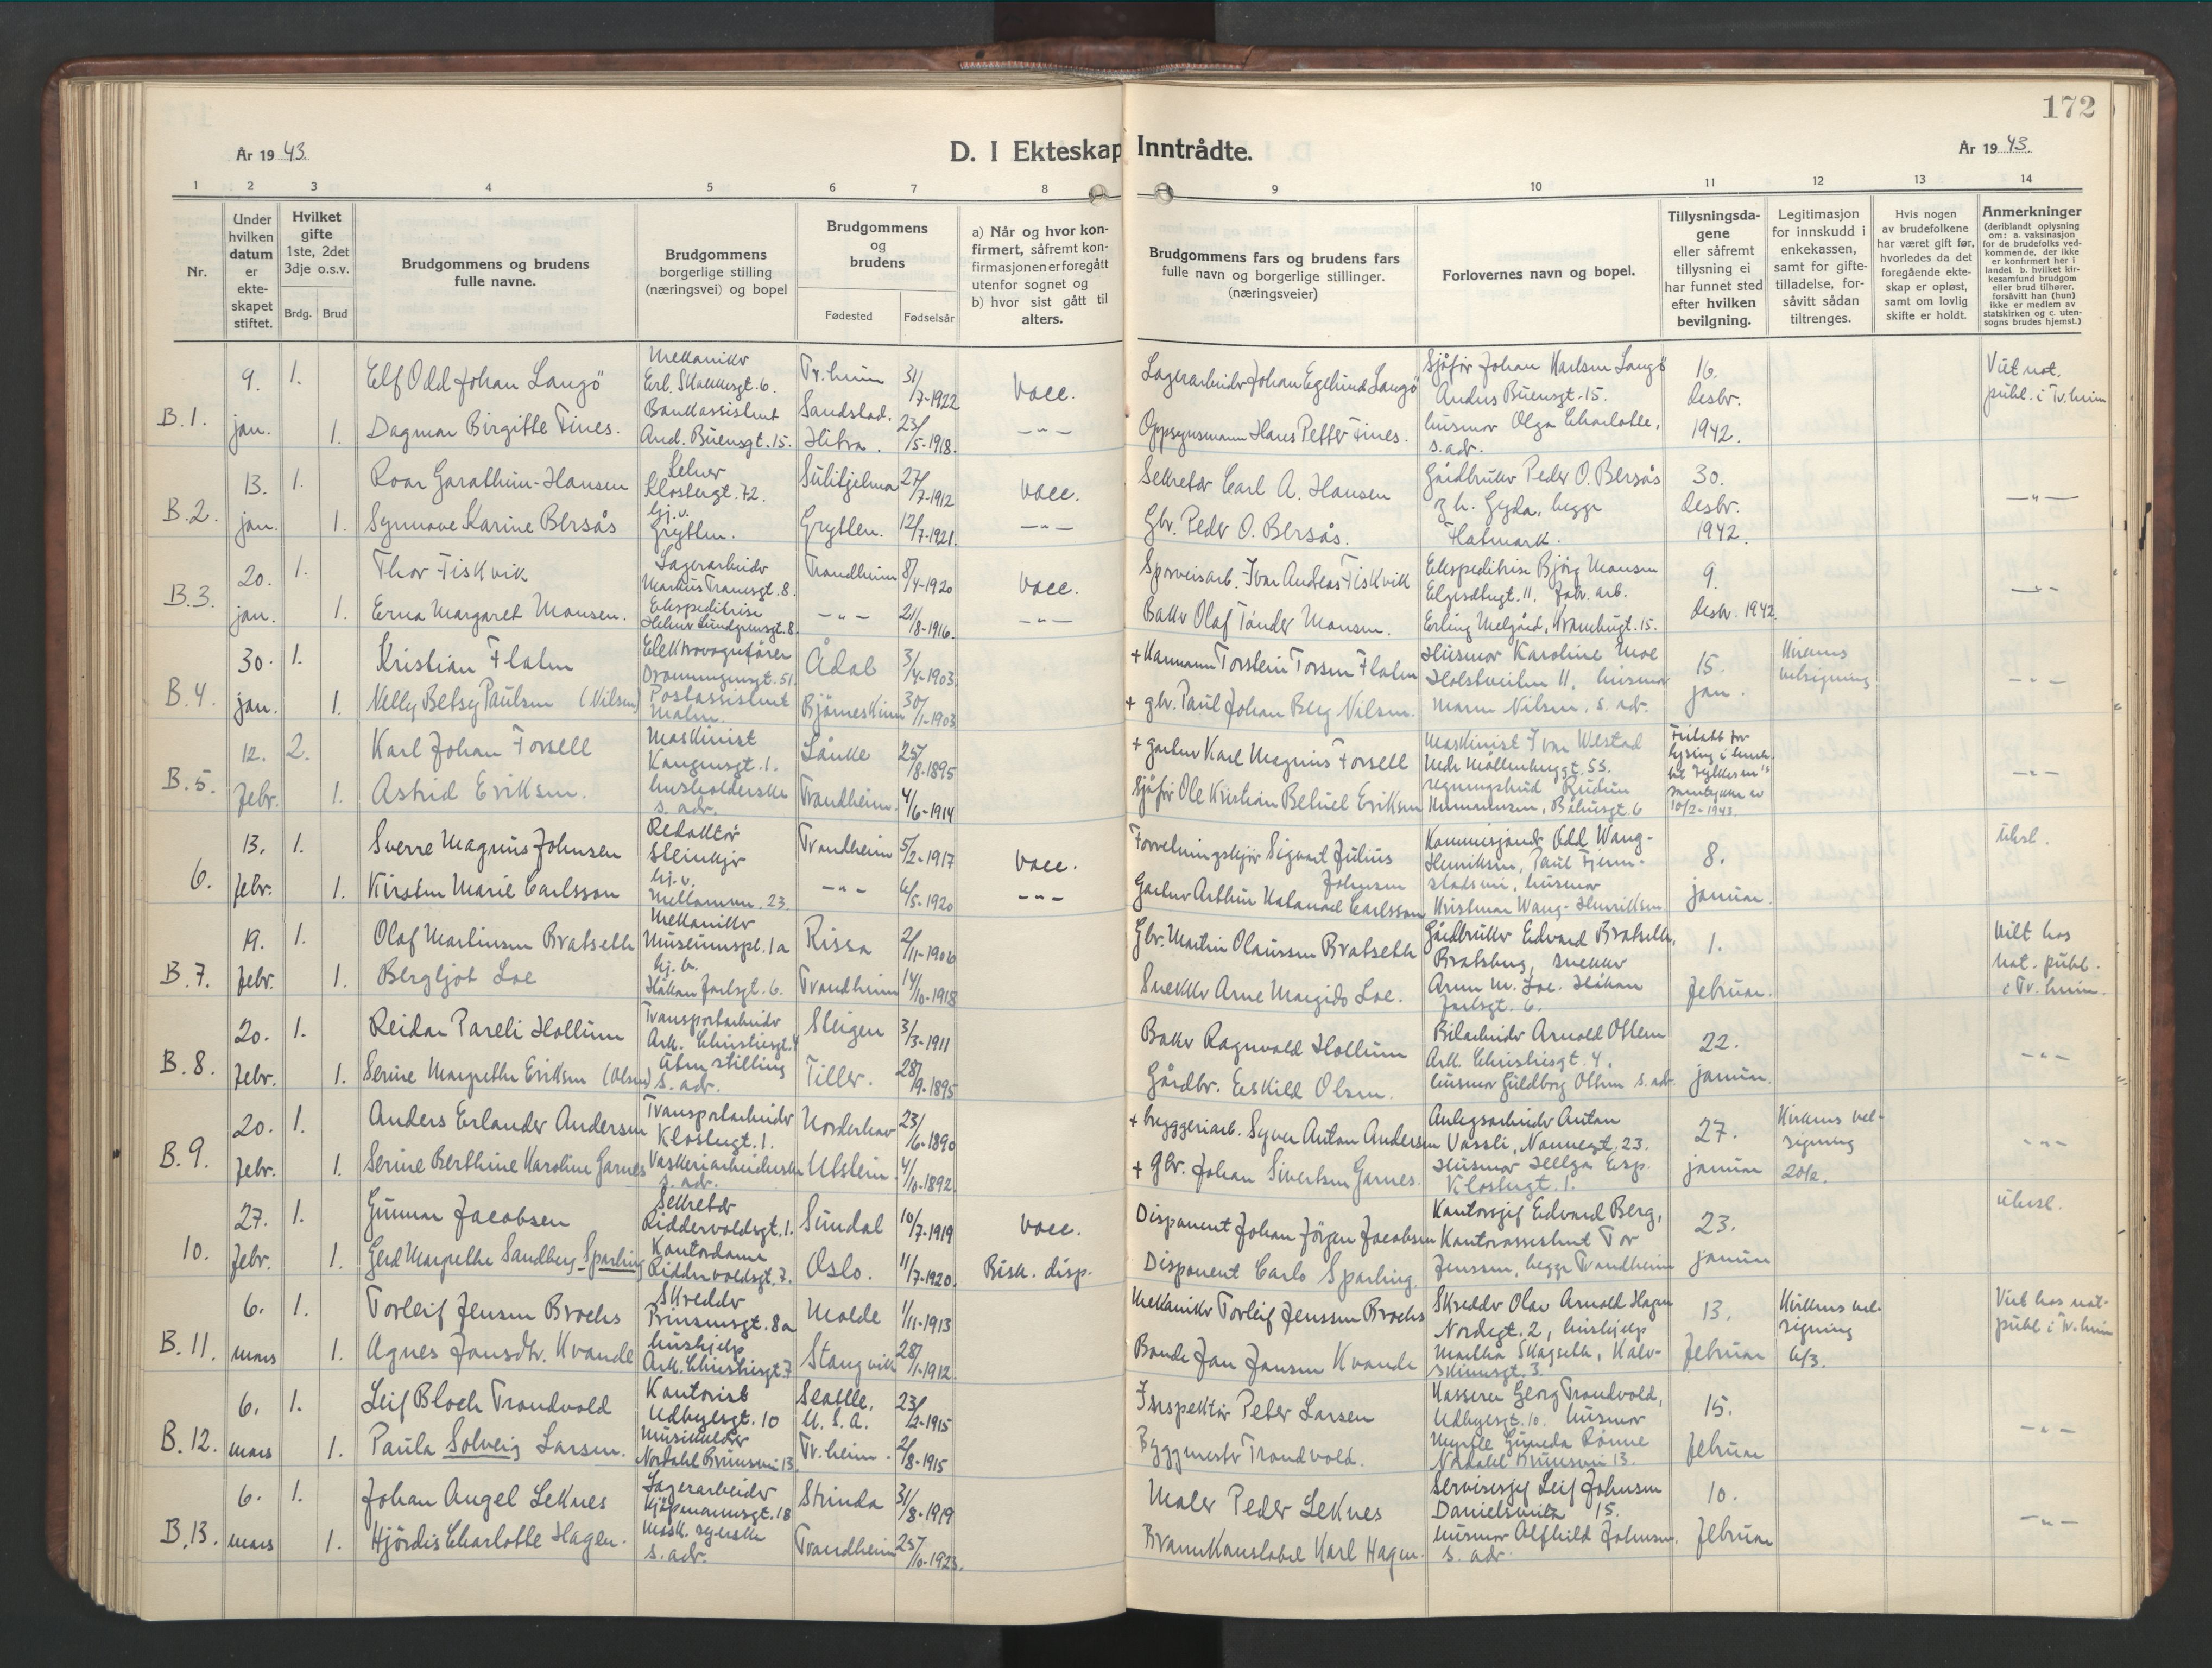 172
År 19 43.
D. I Ekteskap Inntrådte.
År 19 43.
1 2 3 4 5 6 7 8 9 10 11 12 13 14
Nr.
Under hvilken datum er ekteskapet stiftet.
Hvilket gifte 1ste, 2det 3dje o.s.v.
Brdg. Brud
Brudgommens og brudens fulle navne.
Brudgommens borgerlige stilling (næringsvei) og bopel
Brudgommens og brudens
Fødested Fødselsår
a) Når og hvor konfirmert, såfremt konfirmasjonen er foregått utenfor sognet og b) hvor sist gått til alters.
Brudgommens fars og brudens fars fulle navn og borgerlige stillinger. (næringsveier)
Forlovernes navn og bopel.
Tillysningsdagene eller såfremt tillysning ei har funnet sted efter hvilken bevilgning.
Legitimasjon for innskudd i enkekassen, samt for giftetilladelse, forsåvitt sådan tiltrenges.
Hvis nogen av brudefolkene har været gift før, hvorledes da det foregående ekteskap er opløst, samt om lovlig skifte er holdt.
Anmerkninger (deriblandt oplysning om: a. vaksinasjon for de brudefolks vedkommende, der ikke er konfirmert her i landet b. hvilket kirkesamfund brudgom eller brud tilhører, forsåvitt han (hun) ikke er medlem av statskirken og c. utensogns brudes hjemst.)
B.1. 9. jan. 1. Elf Odd Johan Langö Mekaniker Erl. Skakkesgt. 6. Tr.heim 31/7-1922 vacc. Lagerarbeider Johan Egelund Langö Sjåfør Johan Karlsen Langö Anders Buensgt. 15. 16. desbr. 1942.
1. Dagmar Birgitte Fines. Bankassistent And. Buensgt. 15. Sandstad. Hitra. 23/5-1918. -"- Oppsynsmann Hans Petter Fines. husmor Olga Charlotte, s. adr.
B.2. 13. jan. 1. Roar Garathun-Hansen Kelner Klostergt. 72. Sulitjelma 27/7-1912 vacc. Sekretær Carl A. Hansen Gårdbruker Peder O. Bersås 30. desbr. 1942. -"-
1. Synnove Karine Bersås hj.v. Grytten. Grytten. 12/7-1921. -"- Gbr. Peder O. Bersås. Flatmark.
B.3. 20. jan. 1. Thor Fiskvik Lagerarbeider Trondheim 8/4-1920 vacc. Sporveisarb. Ivar Andreas Fiskvik Ekspeditrise Bjørg Monsen 9. desbr. 1942 -"-
1. Erna Margaret Monsen. Ekspeditrise -"- 21/8-1916. -"- Baker Olaf Tönder Monsen.
B.4. 30. jan. 1. Kristian Flatm Elektrovognfører Dronningensgt. 51. Ådal 3/4-1903. + Torstein Torsen Husmor Karoline Moe 15. jan. Kirkens velsigning -"-
1. Nelly Betsy Paulsen (Nilsen) Postassistent Malm. 30/1-1903 + gbr. Paul Johan Berg Nilsen. Nilsen, s. adr.
B.5. 12. febr. 2. Karl Johan Forsell Maskinist Kongensgt. 1. Lånke 25/8-1895 + garver Karl Magnus Forsell Maskinist Ivar Westad -"-
1. Astrid Eriksen. husholderske s. adr. Trondheim. 4/6-1914 sjåfør Ole Kristian Betuel Eriksen 10/2-1943.
6. 13. febr. 1. Sverre Magnus Johnsen Redaktör Steinkjer Trondheim 5/2-1917 vacc. Forretningskjør Sigvart Julius Johnsen Odd Wang-Henriksen, 8. januar. utensl.
1. Kirsten Marie Carlsson hj.v. 23. -"- 6/5-1920 -"- Garver Arthur Natanael Carlsson Wang-Henriksen
B.7. 19. febr. 1. Olaf Martinsen Bratseth Mekaniker Museumspl. 1a Rissa 2/11-1906 Gbr. Martin Olaussen Bratseth Gårdbruker Edvard Bratseth, Bratsberg, snekker 1. februar. Vilt hos not. publ. i Tr.heim.
1. Bergljot Loe hj.v. Håkon Jarlsgt. 6. Trondheim 14/10-1918 Snekker Arne Margido Loe. Arne M. Loe. Håkon Jarlsgt. 6.
B.8. 20. febr. 1. Reidar Pareli Hollum Transportarbeider Ark. Christiesgt. 4 Steigen 3/3-1911 Baker Ragnvald Hollum Bilarbeider Arnold Ottem Ark. Christiesgt. 4. 22. januar. -"-
1. Serine Margrethe Eriksen (Olsen) uten stilling s. adr. Tiller. 28/9-1895 Gårdbr. Eskild Olsen. husmor Guldborg Ottem s. adr.
B.9. 20. febr. 1. Anders Erlander Andersen Transportarbeider Klostergt. 1. Norderhov 23/6-1890 + bryggeriarb. Syver Anton Andersen Anlegsarbeider Anton Vassli, Nonnegt. 23. 27. januar Kirkens velsigning 20/2. -"-
1. Serine Berthine Karoline Garnes Vaskeriarbeiderske s. adr. Utstein. 4/10-1892. + Gbr. Johan Sivertsen Garnes. Husmor Helga Esp. Klostergt. 1.
10. 27. febr. 1. Gunnar Jacobsen Sekretær Riddervoldsgt. 1. Sundal 10/7-1919 vacc. Disponent Johan Jörgen Jacobsen Kontorsjef Edvard Berg, Kontorassistent Tor Jenssen, begge Trondheim 23. januar utensl.
1. Gerd Margrethe Sandberg-Sparling Kontordame Riddervoldsgt. 7. Oslo. 11/7-1920. Bisk. disp. Disponent Carlo Sparling.
B.11. 6. mars 1. Torleif Jensen Brochs Skredder Prinsensgt. 8a Molde 1/11-1913 Mekaniker Torleif Jenssen Brochs Skredder Olav Arnold Hagen Nordregt. 2, hushjelp 13. februar Kirkens velsigning 6/3. Vilt hos not. publ. i Tr.heim
1. Agnes Jonsdtr. Kvande hushjelp Ark. Christiesgt. 7 Stangvik 28/1-1912. Bonde Jon Jonsen Kvande Martha Skagseth, Kalvskinnsgt. 3.
B.12. 6. mars 1. Leif Bloch Trondvold Kontorist Udbyesgt. 10 Seattle, U.S.A. 23/2-1915 Inspektör Peter Larsen Kasserer Georg Trondvold, Udbyesgt. 10. husmor 15. februar -"-
1. Paula Solveig Larsen. Nordahl Brunsvei 13. Tr.heim. 2/8-1915 Byggmester Trondvold. Rönne N.dahl Brunsvei 13.
B.13. 6. mars 1. Johan Angel Leknes Lagerarbeider Kjøpmannsgt. 18 Strinda 31/8-1919 Maler Peder Leknes Servicesjef Leif Johnsen Danielsveita 15. 10. februar -"-
1. Hjördis Charlotte Hagen. Mask. syerske s. adr. Trondheim 25/10-1923. Brannkonstabel Karl Hagen. husmor Alfhild Johnsen. s. adr.